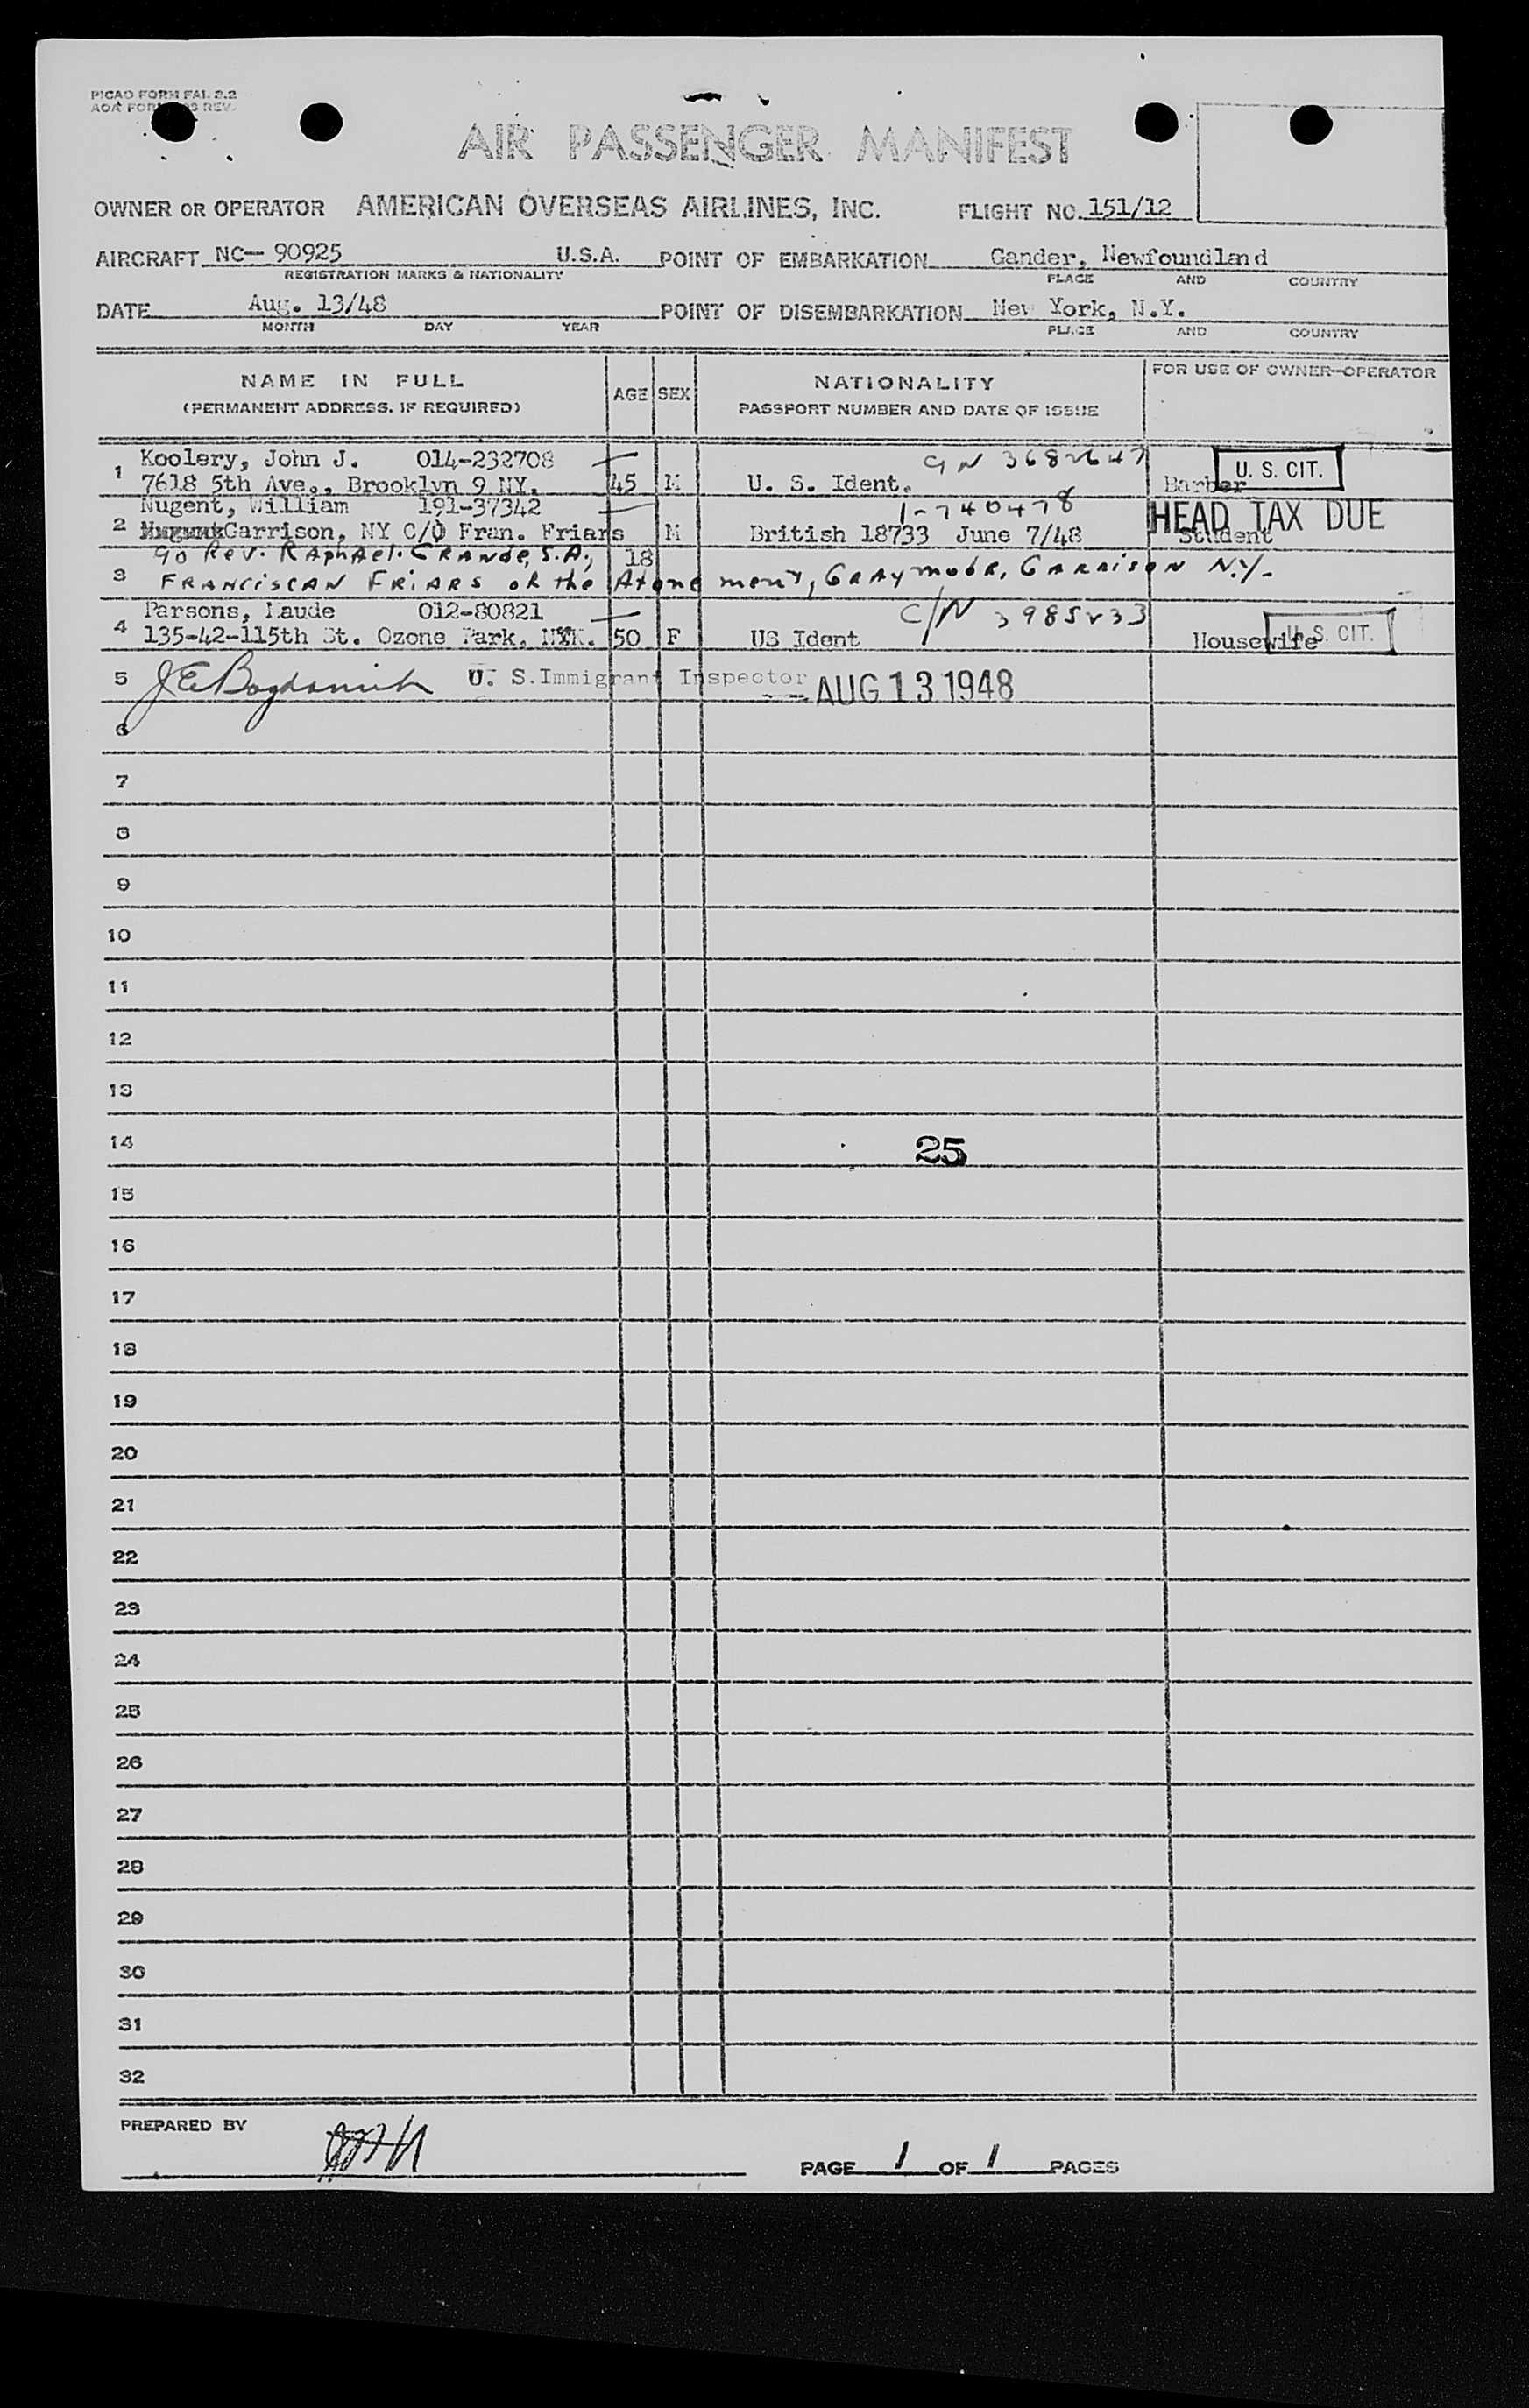 PICAO FORM FAL 2.2
AOA FORM REV.
AIR PASSENGER MANIFEST
OWNER OR OPERATOR AMERICAN OVERSEAS AIRLINES, INC. FLIGHT NO. 151/12
AIRCRAFT NC- 90925 U.S.A. POINT OF EMBARKATION Gander, Newfoundland
REGISTRATION MARKS & NATIONALITY PLACE AND COUNTRY
DATE Aug. 13/48 POINT OF DISEMBARKATION New York, N.Y.
MONTH DAY YEAR PLACE AND COUNTRY
NAME IN FULL AGE SEX NATIONALITY FOR USE OF OWNER-OPERATOR
(PERMANENT ADDRESS, IF REQUIRED) PASSPORT NUMBER AND DATE OF ISSUE
1 Koolery, John J. 014-232708 C/N 3682647 U. S. CIT.
7618 5th Ave., Brooklyn 9 NY. 45 M U. S. Ident. Barber
Nugent, William 191-37342 1-740478 HEAD TAX DUE
2 Garrison, NY C/O Fran. Friars M British 18733 June 7/48 Student
c/o Rev. Raphael Grande, S.A., 18
3 Franciscan Friars of the Atonement, Graymoor, Garrison N.Y.
Parsons, Maude 012-80821 C/N 3985233
4 135-42-115th St. Ozone Park, NY. 50 F US Ident Housewife U. S. CIT.
5 U. S. Immigrant Inspector AUG 13 1948
6
7
8
9
10
11
12
13
14 25
15
16
17
18
19
20
21
22
23
24
25
26
27
28
29
30
31
32
PREPARED BY
PAGE 1 OF 1 PAGES